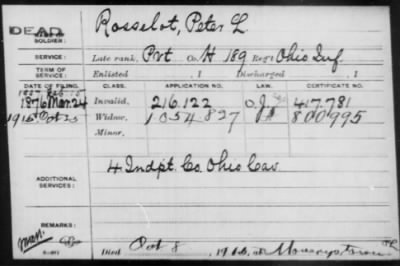 DEAD Rosselot, Peter L.
SOLDIER:
SERVICE: Late rank, Pvt Co. H 189 Reg't Ohio Inf.
TERM OF SERVICE: Enlisted , 1 Discharged , 1
DATE OF FILING. CLASS. APPLICATION NO. LAW. CERTIFICATE NO.
1876 Mar. 24 Invalid, 216.122 417.781
Widow, 1054827 800995
Minor,
4 Indpt. Co. Ohio Cav
ADDITIONAL SERVICES:
REMARKS:
Died Oct 8, 1916, at